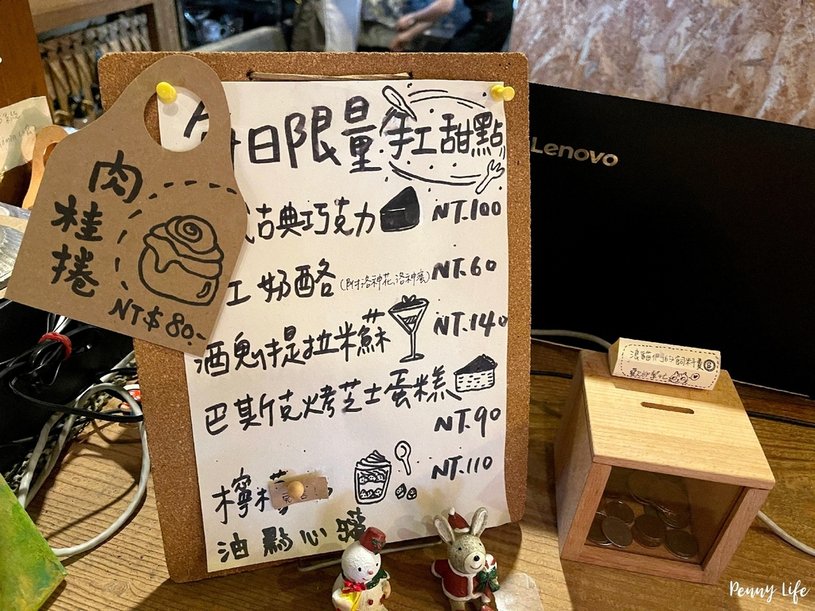 肉
桂
捲
NT$80.-
每日限量手工甜點
古典巧克力 NT.100
工奶酪(附洛神花、洛神蜜) NT.60
酒鬼提拉米蘇 NT.140
巴斯克烤芝士蛋糕
NT.90
檸檬 NT.110
油點心
Lenovo
浪貓們的飼料費
Penny Life